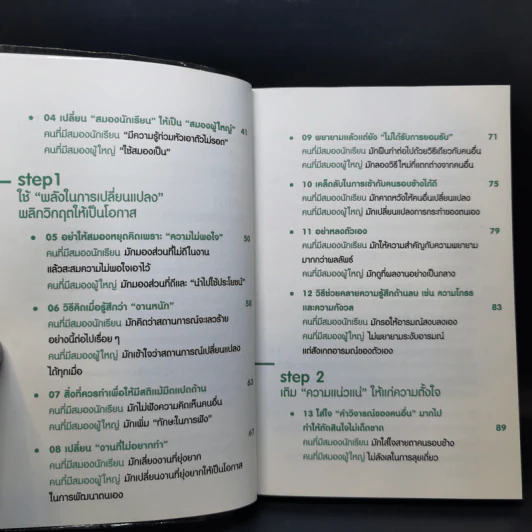 04 เปลี่ยน "สมองนักเรียน" ให้เป็น "สมองผู้ใหญ่" 41
คนที่มีสมองนักเรียน "มีความรู้ท่วมหัวเอาตัวไม่รอด"
คนที่มีสมองผู้ใหญ่ "ใช้สมองเป็น"
step1
ใช้ "พลังในการเปลี่ยนแปลง"
พลิกวิกฤตให้เป็นโอกาส
05 อย่าให้สมองหยุดคิดเพราะ "ความไม่พอใจ" 50
คนที่มีสมองนักเรียน มักมองส่วนที่ไม่ดีในงาน
แล้วสะสมความไม่พอใจเอาไว้
คนที่มีสมองผู้ใหญ่ มักมองส่วนที่ดีและ "นำไปใช้ประโยชน์"
06 วิธีคิดเมื่อรู้สึกว่า "งานหนัก" 58
คนที่มีสมองนักเรียน มักคิดว่าสถานการณ์จะเลวร้าย
อย่างนี้ต่อไปเรื่อย ๆ
คนที่มีสมองผู้ใหญ่ มักเข้าใจว่าสถานการณ์เปลี่ยนแปลง
ได้ทุกเมื่อ
07 สิ่งที่ควรทำเพื่อให้มีสติแม้มืดแปดด้าน 63
คนที่มีสมองนักเรียน มักไม่ฟังความคิดเห็นคนอื่น
คนที่มีสมองผู้ใหญ่ มักเพิ่ม "ทักษะในการฟัง"
08 เปลี่ยน "งานที่ไม่อยากทำ" 67
คนที่มีสมองนักเรียน มักเลี่ยงงานที่ยุ่งยาก
คนที่มีสมองผู้ใหญ่ มักเปลี่ยนงานที่ยุ่งยากให้เป็นโอกาส
ในการพัฒนาตนเอง
09 พยายามแล้วแต่ยัง "ไม่ได้รับการยอมรับ" 71
คนที่มีสมองนักเรียน มักฝืนทำต่อไปด้วยวิธีเดียวกับคนอื่น
คนที่มีสมองผู้ใหญ่ มักลองวิธีใหม่ที่แตกต่างจากคนอื่น
10 เคล็ดลับในการเข้ากับคนรอบข้างได้ดี 75
คนที่มีสมองนักเรียน มักคาดหวังให้คนอื่นเปลี่ยนแปลง
คนที่มีสมองผู้ใหญ่ มักเปลี่ยนแปลงการกระทำของตนเอง
11 อย่าหลงตัวเอง 79
คนที่มีสมองนักเรียน มักให้ความสำคัญกับความพยายาม
มากกว่าผลลัพธ์
คนที่มีสมองผู้ใหญ่ มักดูที่ผลงานอย่างเป็นกลาง
12 วิธีช่วยคลายความรู้สึกด้านลบ เช่น ความโกรธ
และความกังวล 83
คนที่มีสมองนักเรียน มักรอให้อารมณ์สงบลงเอง
คนที่มีสมองผู้ใหญ่ ไม่พยายามระงับอารมณ์
แต่สังเกตอารมณ์ของตัวเอง
step 2
เติม "ความแน่วแน่" ให้แก่ความตั้งใจ
13 ใส่ใจ "คำวิจารณ์ของคนอื่น" มากไป
ทำให้ตัดสินใจไม่เด็ดขาด 89
คนที่มีสมองนักเรียน มักใส่ใจสายตาคนรอบข้าง
คนที่มีสมองผู้ใหญ่ ไม่ลังเลในการลุยเดี่ยว